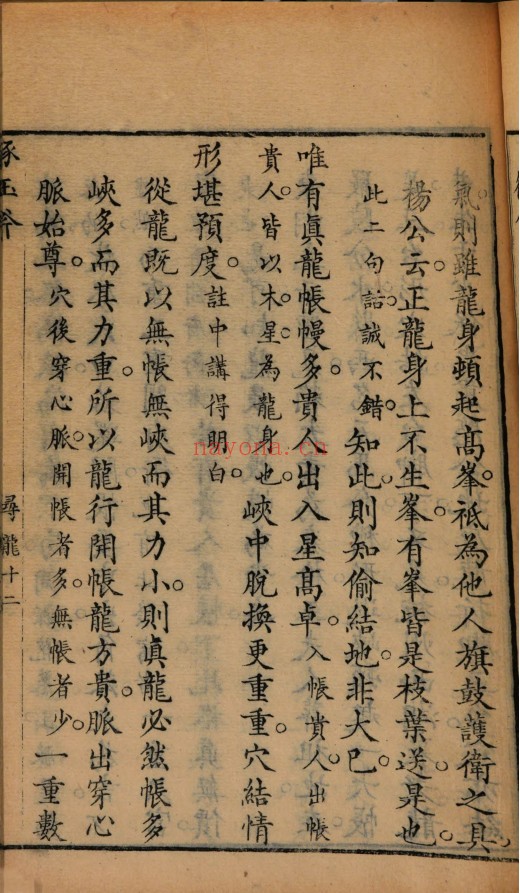 氣則雖龍身頓起高峯。祗為他人旗鼓護衛之具。
楊公云。正龍身上不生峯。有峯皆是枝葉送。是也。
此二句話誠不錯。知此。則知偷結地。非大巳。
唯有眞龍帳幔多。貴人出入星高卓。入帳貴人。出帳
貴人。皆以木星。為龍身也。峽中脫換更重重。穴結情
形堪預度。註中講得明白。
從龍既以無帳無峽而其力小。則眞龍必然帳多
峽多而其力重。所以龍行開帳。龍方貴。脈出穿心
脈始尊。穴後穿心脈。開帳者多。無帳者少。一重數
琢玉斧
尋龍十二
nayona.cn